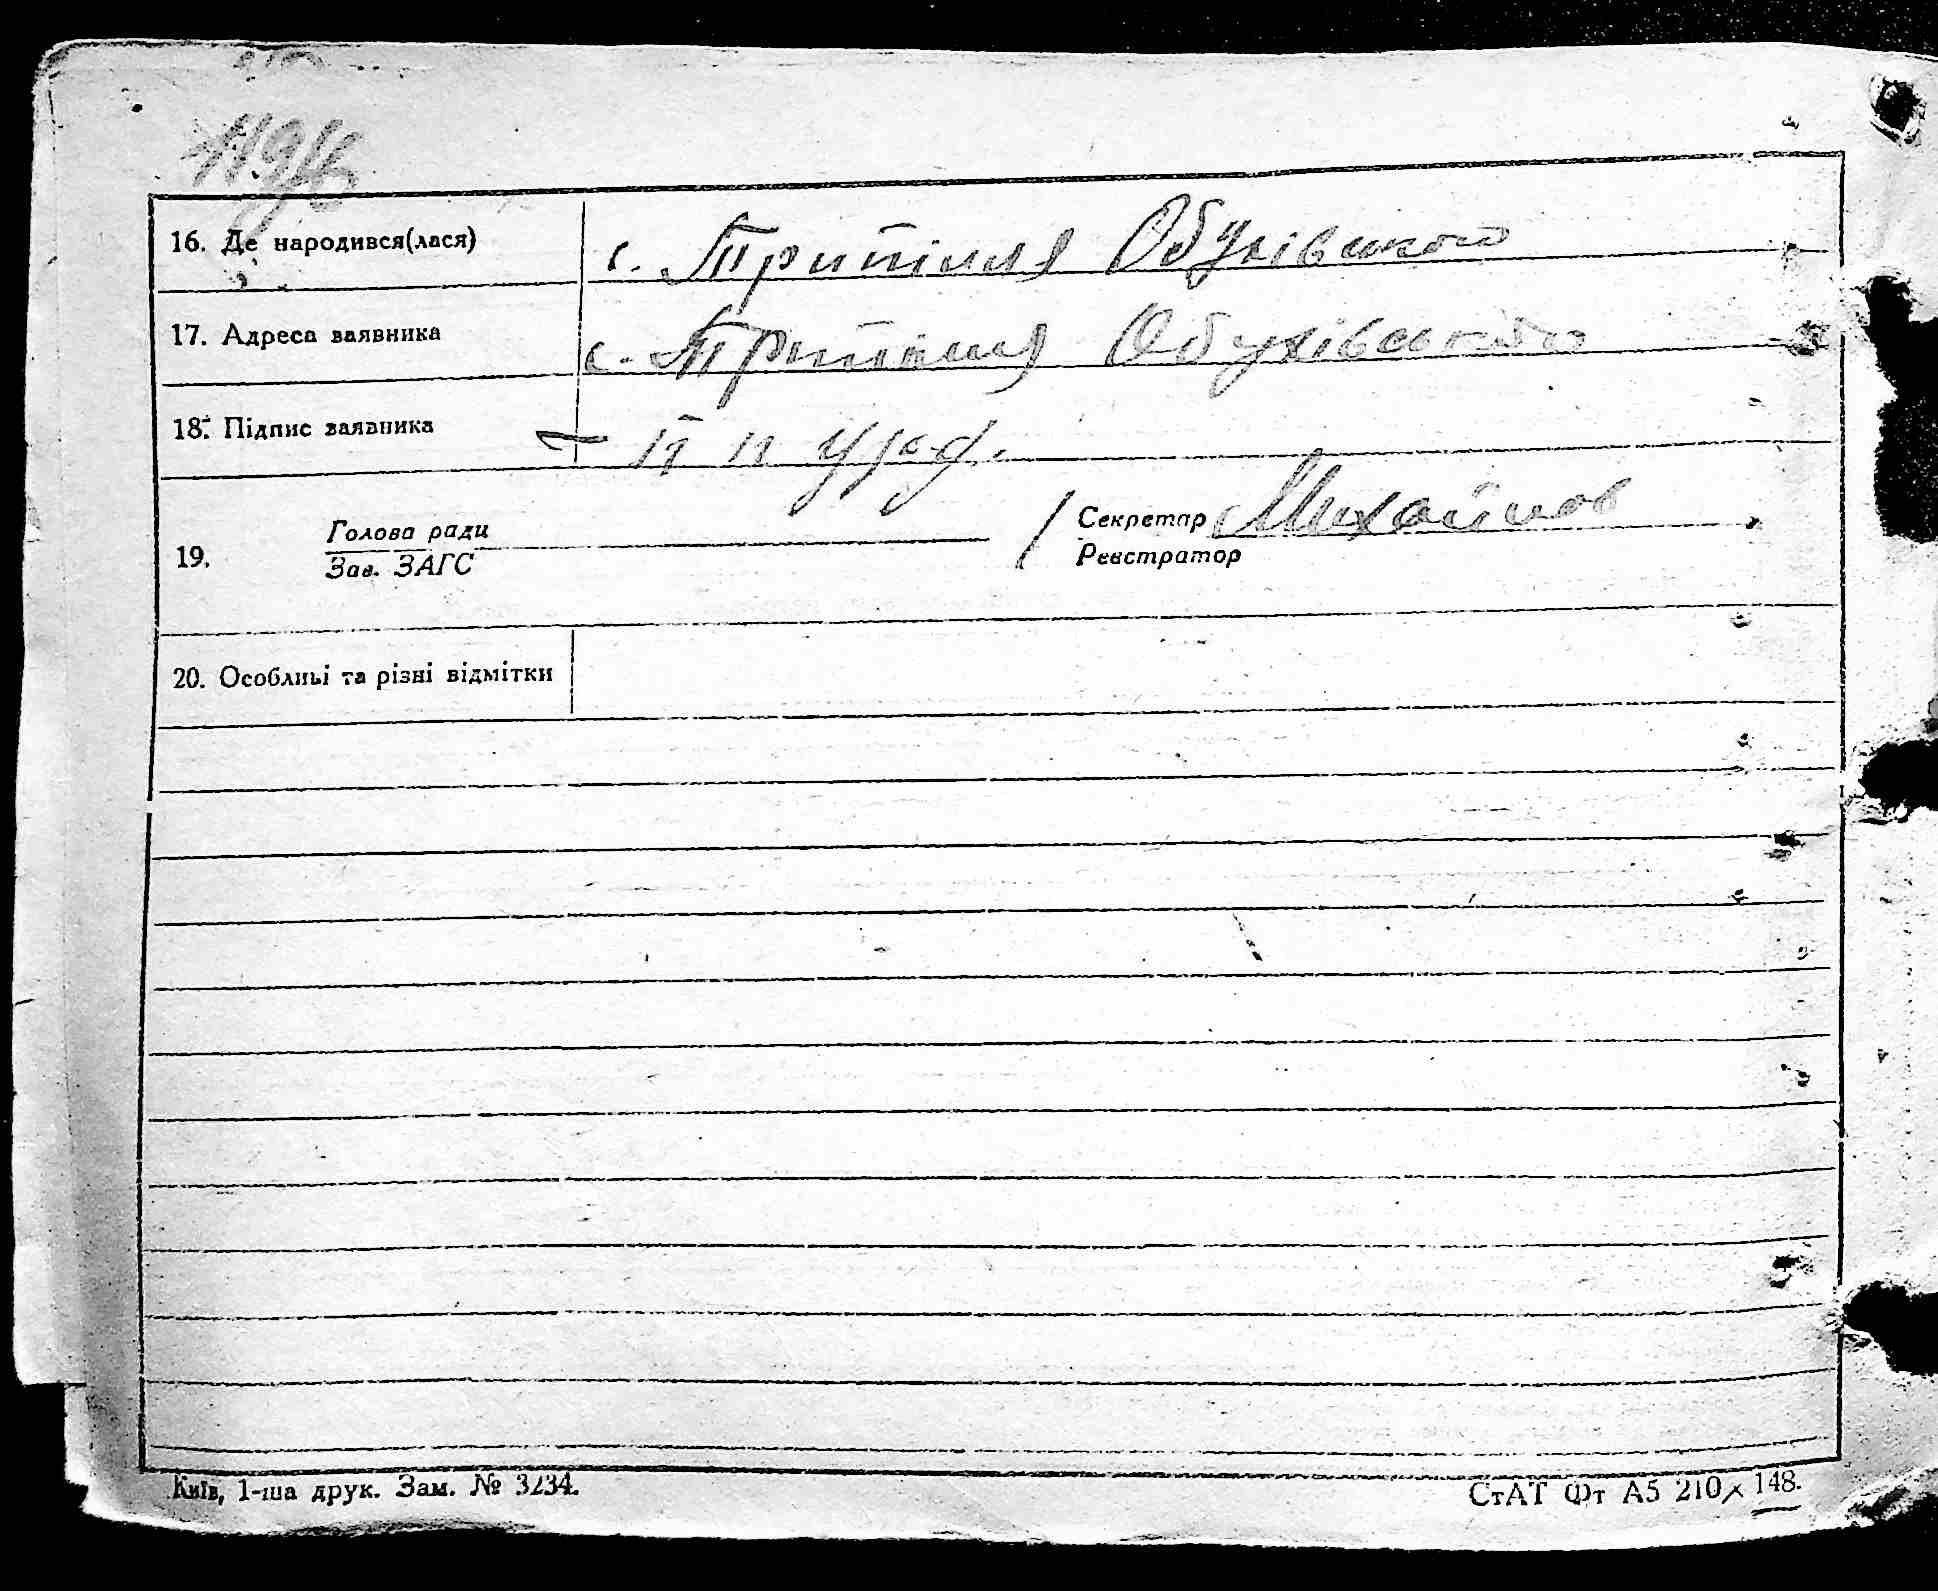 16. Де народився(лася) с. Трипілля Обухівського
17. Адреса заявника с. Трипілля Обухівського
18. Підпис заявника
19. Голова ради Секретар Михайлов
Зав. ЗАГС Реєстратор
20. Особливі та різні відмітки
Київ, 1-ша друк. Зам. № 3234. СтАТ Фт А5 210 × 148.